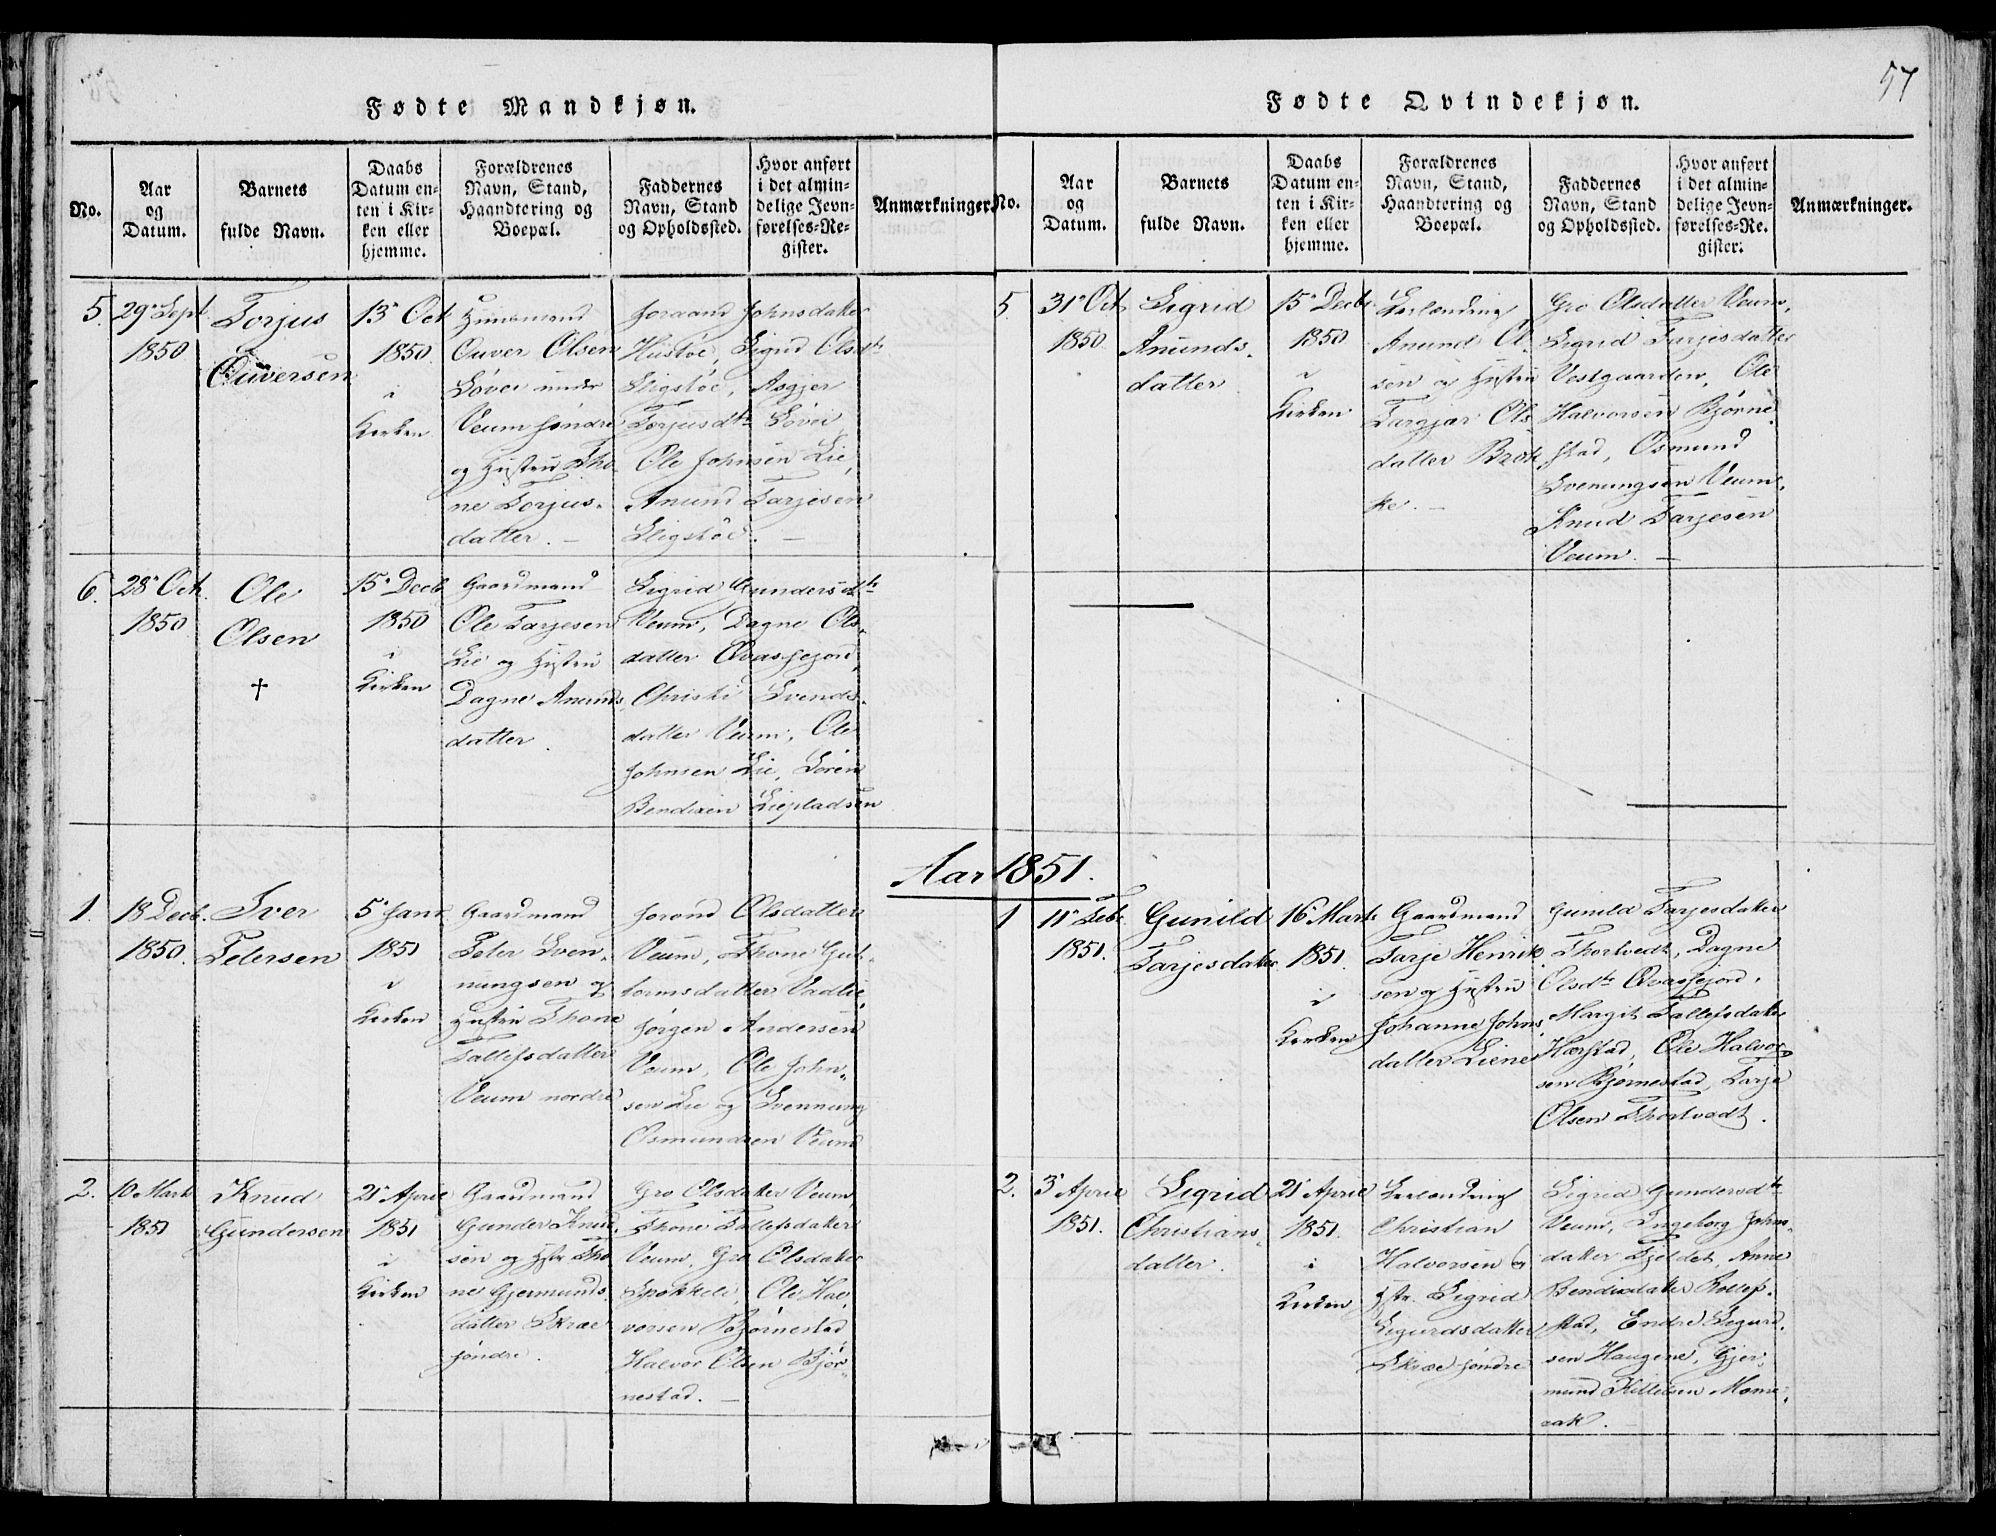 57
Fødte Mandkjøn.
No.
Aar
og
Datum.
Barnets
fulde Navn.
Daabs
Datum en-
ten i Kir-
ken eller
hjemme.
Forældrenes
Navn, Stand,
Haandtering og
Boepæl.
Faddernes
Navn, Stand
og Opholdssted.
Hvor anført
i det almin-
delige Jevn-
førelses-Re-
gister.
Anmærkninger.
5.
29de Sept
1850
Torjus
Ouversen
13de Oct
1850.
i
Kirken
Huusmand
Ouver Olsen
Løvei under
Veum søndre
og Hustru Tho-
ne Torjus-
datter. –
Joraand Johnsdatter
Hustøe, Sigrid Olsdtr
Stigstøe, Asgjer
Torjusdtr Løvei
Ole Johnsen Lie,
Anund Tarjesen
Stigstøe. –
6.
28de Oct.
1850
Ole
Olsen
†
15de Decb.
1850
i
Kirken
Gaardmand
Ole Tarjesen
Lie og Hustru
Dagne Anunds-
datter.
Sigrid Gundersdtr
Veum, Dagne Ols-
datter Qvassejord,
Christi Svends-
datter Veum, Ole
Johnsen Lie, Søren
Bendixen Liepladsen
Aar 1851.
1.
18 Decb.
1850.
Iver
Petersen
5te Janr
1851
i
Kirken
Gaardmand
Peter Sven-
nungsen og
Hustru Thone
Tallefsdatter
Veum nordre
Jorond Olsdatter
Veum, Thone Gut-
tormsdatter Vadlie,
Jørgen Andersen
Veum, Ole John-
sen Lie og Svennung
Osmundsen Veum
2.
10 Marts
1851
Knud
Gundersen
21de April
1851
i
Kirken
Gaardmand
Gunder Knud-
sen og Hstr. Tho-
ne Gjermunds-
datter Skræe
søndre.
Gro Olsdatter Veum,
Thone Tallefsdatter
Veum, Gro Olsdatter
Spokkeli, Ole Hal-
vorsen Bjørnestad,
Halvor Olsen Bjør-
nestad. –
Fødte Qvindekjøn.
No.
Aar
og
Datum.
Barnets
fulde Navn.
Daabs
Datum en-
ten i Kir-
ken eller
hjemme.
Forældrenes
Navn, Stand,
Haandtering og
Boepæl.
Faddernes
Navn, Stand
og Opholdssted.
Hvor anført
i det almin-
delige Jevn-
førelses-Re-
gister.
Anmærkninger.
5.
31te Oct
1850
Sigrid
Anunds-
datter
15de Decbr
1850
i
Kirken
Leilænding
Anund Ol-
sen og Hustru
Targjær Ols-
datter Brok-
ke. –
Gro Olsdatter Veum,
Sigrid Tarjesdatter
Vestgaarden, Ole
Halvorsen Bjørne-
stad, Osmund
Svenungsen Veum,
Knud Tarjesen
Veum. –
1
11te Febr
1851.
Gunild
Tarjesdatter
16de Marts
1851.
i
Kirken
Gaardmand
Tarje Henrik-
sen og Hustru
Johanne Johns-
datter Liene
Gunild Tarjesdatter
Thortvedt, Dagne
Olsdtr Qvassejord,
Margit Tallefsdatter
Harstad, Ole Halvor-
sen Bjørnestad, Tarje
Olsen Thortvedt.
2.
3de April
1851.
Sigrid
Christians-
datter.
21de April
1851.
i
Kirken
Leilænding
Christian
Halvorsen og
Hstr. Sigrid
Sigurdsdatter
Skræe søndre
Sigrid Gundersdtr
Veum, Ingeborg Johns-
datter Fjeldet, Anne
Bendixdatter Rollef-
stad, Endre Sigurd-
sen Haugene, Gjer-
mund Kittelsen Mome-
rak. –